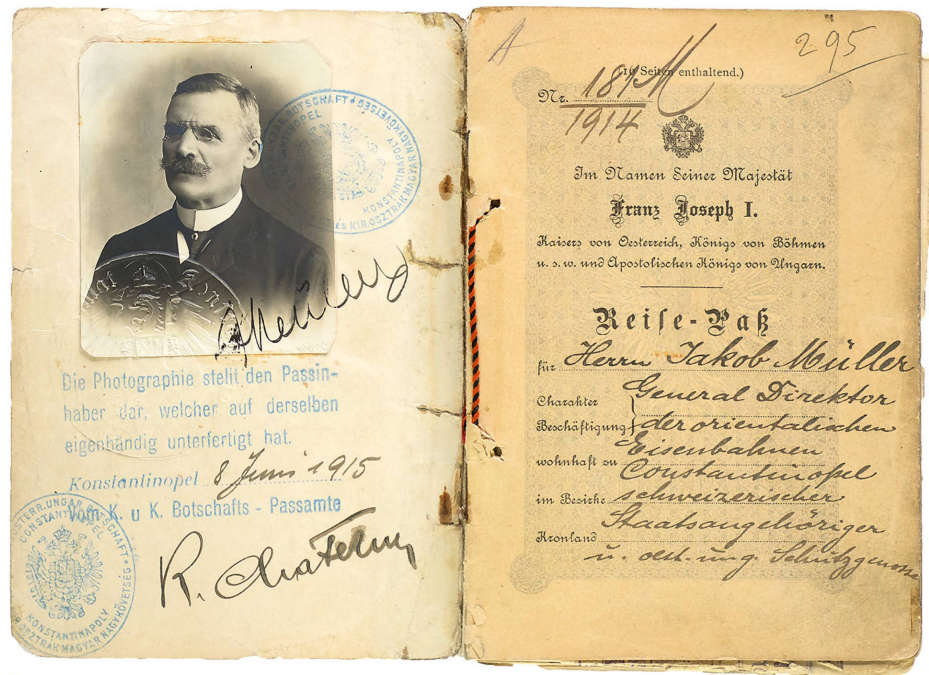 Die Photographie stellt den Passin-
haber dar, welcher auf derselben
eigenhändig unterfertigt hat.
Konstantinopel 8 Juni 1915
Vom K. u K. Botschafts - Passamte
KONSTANTINAPOLY
CONSTANTINOPEL
KONSTANTINAPOLY
A
295
(16 Seiten enthaltend.)
Nr. 181 M
1914
Im Namen Seiner Majestät
Franz Joseph I.
Kaisers von Oesterreich, Königs von Böhmen
u. s. w. und Apostolischen Königs von Ungarn.
Reise-Paß
für Herrn Jakob Müller
Charakter General Direktor
Beschäftigung der orientalischen
Eisenbahnen
wohnhaft zu Constantinopel
im Bezirke schweizerischer
Staatsangehöriger
Kronland
u. öst. ung. Schutzgenosse